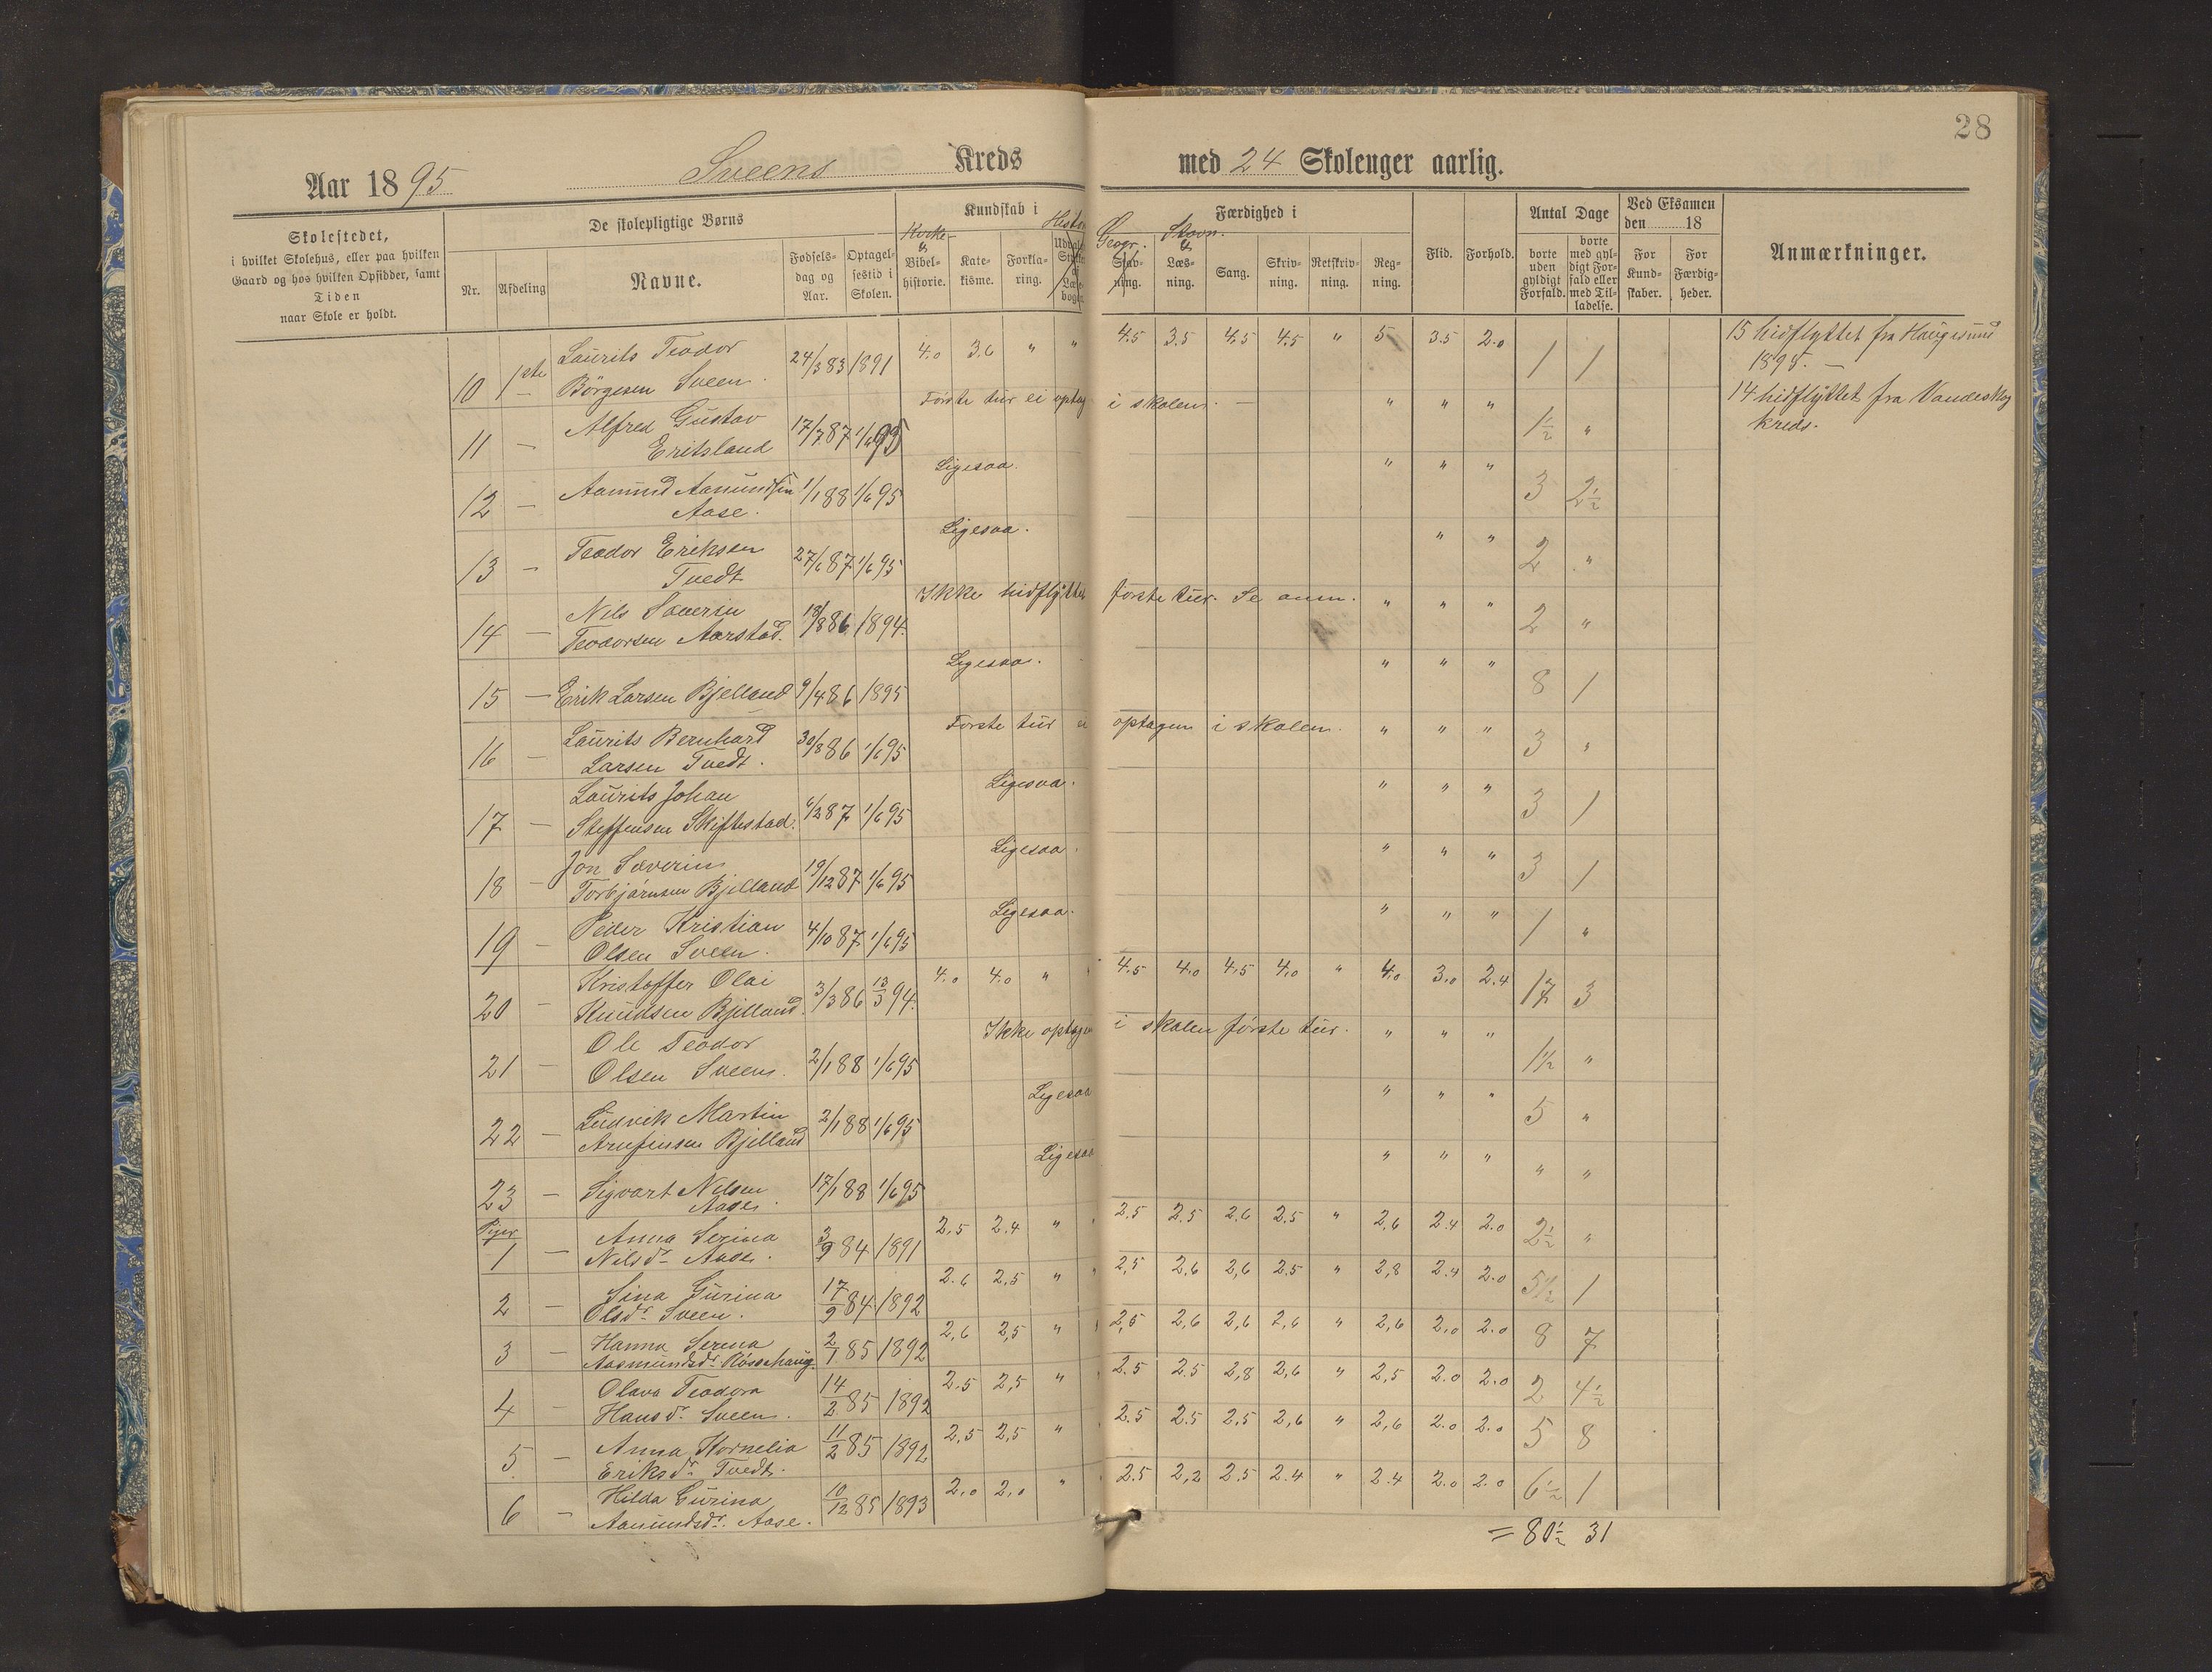 28
Aar 1895 Sveens Kreds med 24 Skolenger aarlig.
Skolestedet,
i hvilket Skolehus, eller paa hvilken
Gaard og hos hvilken Opsidder, samt
Tiden
naar Skole er holdt.
De skolepligtige Børns
Nr. Afdeling Navne. Fødsels-dag og Aar. Optagel-sestid i Skolen.
Kundskab i
Kirke- & Bibel-historie. Kate-kisme. Forkla-ring. Histor
Færdighed i
Geogr. Stav-ning. Stavn. & Læs-ning. Sang. Skriv-ning. Retskriv-ning. Reg-ning.
Flid. Forhold.
Antal Dage
borte uden gyldigt Forfald. borte med gyl-digt For-fald eller med Til-ladelse.
Ved Eksamen
den 18
For Kund-skaber. For Færdig-heder.
Anmærkninger.
Laurits Teodor 4.0 3.6 " " 4.5 3.5 4.5 4.5 " 5 3.5 2.0
10 1ste Börgesen Sveen. 24/3 83 1891 1 1 15 hidflyttet fra Haugesund
1895. —
Alfred Gustav Förste tur ei optag i skolen. — " " "
11 — Eritsland 17/7 87 1/6 95 1½ " 14 hidflyttet fra Vandeskog
kreds.
12 — Aamund Aamundsen 1/1 88 1/6 95 Ligesaa. " " " 3 2½
Aase.
Teodor Eriksen Ligesaa. " "
13 — Tvedt 27/6 87 1/6 95 2 "
Nils Severin Ikke hidflyttet förste tur. Se anm. " " "
14 — Teodorsen Aarstad. 18/8 86 1894. 2 "
15 — Erik Larsen Bjelland 9/4 86 1895 Ligesaa. " " " 8 1
Laurits Bernhard Förste tur ei optagen i skolen. " " "
16 — Larsen Tvedt. 30/8 86 1/6 95 3 "
Laurits Johan Ligesaa. " " "
17 — Steffensen Skiftestad. 6/2 87 1/6 95 3 1
Jon Severin Ligesaa. " " "
18 — Torbjörnsen Bjelland 19/12 87 1/6 95 3 1
Peder Kristian Ligesaa. " " "
19 — Olsen Sveen. 4/10 87 1/6 95 1 "
Kristoffer Olai 4.0 4.0 " " 4.5 4.0 4.5 4.0 " 4.0 3.0 2.4
20 — Knudsen Bjelland. 3/3 86 13/3 94. 17 3
Ole Teodor Ikke optagen i skolen förste tur. " " "
21 — Olsen Sveen. 2/1 88 1/6 95 1½ "
Ludvik Martin Ligesaa " " "
22 — Bjelland 2/1 88 1/6 95 5 "
23 — Sigvart Nilsen 17/1 88 1/6 95 Ligesaa " " " " "
Aase.
Piger Anna Serina 2.5 2.4 " " 2.5 2.5 2.6 2.5 " 2,6 2.4 2.0
1 — Nilsdr. Aase. 3/9 84 1891 2½ "
Sina Gurina 2.6 2,5 " " 2,5 2.6 2,6 2.5 " 2,8 2.4 2.0
2 — Olsdr. Sveen. 17/9 84 1892 5½ 1
Hanna Serina 2,6 2,5 " " 2,5 2,6 2,6 2,6 " 2,6 2.0 2.0
3 — Aasmundsdr. Rössehaug. 2/1 85 1892 8 7
Olava Teodora 2.5 2,5 " " 2.5 2.5 2,8 2,6 " 2,5 2.0 2.0
4 — Hansdr. Sveen. 14/2 85 1892 2 4½
Anna Kornelia 2,5 2,5 " " 2.5 2.5 2,5 2,6 " 2,6 2.0 2.0
5 — Eriksdr. Tvedt. 11/2 85 1892 5 8
Hilda Gurina 2,0 2,0 " " 2.5 2,2 2.5 2.4 " 2.4 2.0 2.0
6 — Aamundsdr. Aase. 10/12 85 1893 6½ 1
= 80½ 31